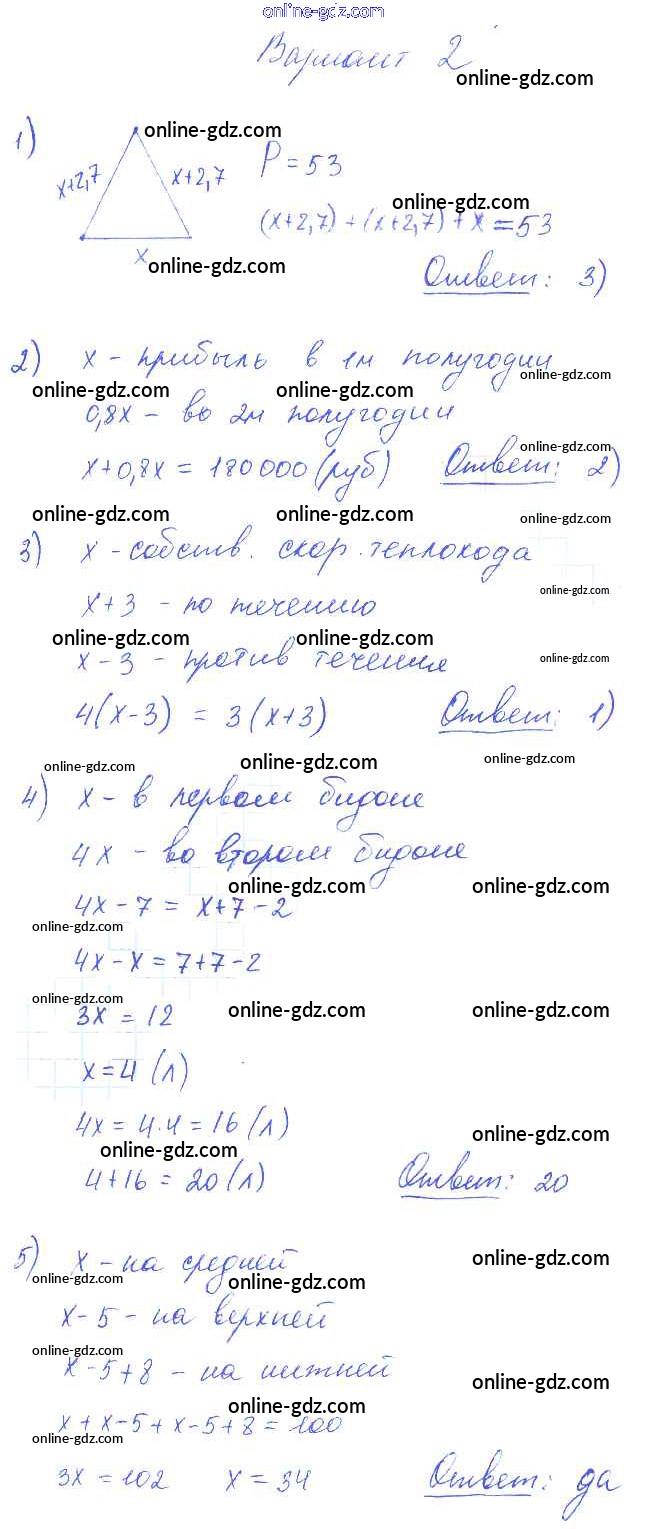 online-gdz.com
Вариант 2
online-gdz.com
1)
online-gdz.com
x+2,7 x+2,7 P = 53
online-gdz.com
(x+2,7) + (x+2,7) + x = 53
x
online-gdz.com
Ответ: 3)
2) x - прибыль в 1м полугодии
online-gdz.com
online-gdz.com online-gdz.com
0,8x - во 2м полугодии
online-gdz.com
x+0,8x = 180000 (руб) Ответ: 2)
online-gdz.com online-gdz.com online-gdz.com
3) x - собств. скор. теплохода
online-gdz.com
x+3 - по течению
online-gdz.com online-gdz.com
x-3 - против течения online-gdz.com
4(x-3) = 3(x+3) Ответ: 1)
online-gdz.com online-gdz.com online-gdz.com
4) x - в первом бидоне
4x - во втором бидоне
online-gdz.com online-gdz.com
4x - 7 = x+7-2
online-gdz.com
4x-x = 7+7-2
online-gdz.com
3x = 12 online-gdz.com online-gdz.com
x=4 (л)
4x = 4·4 = 16 (л)
online-gdz.com
online-gdz.com
4+16 = 20 (л) Ответ: 20
5) x - на средней online-gdz.com
online-gdz.com online-gdz.com
x-5 - на верхней
online-gdz.com
x-5+8 - на нижней online-gdz.com
online-gdz.com
x + x-5 + x-5+8 = 100
online-gdz.com
3x = 102 x = 34 Ответ: да
online-gdz.com